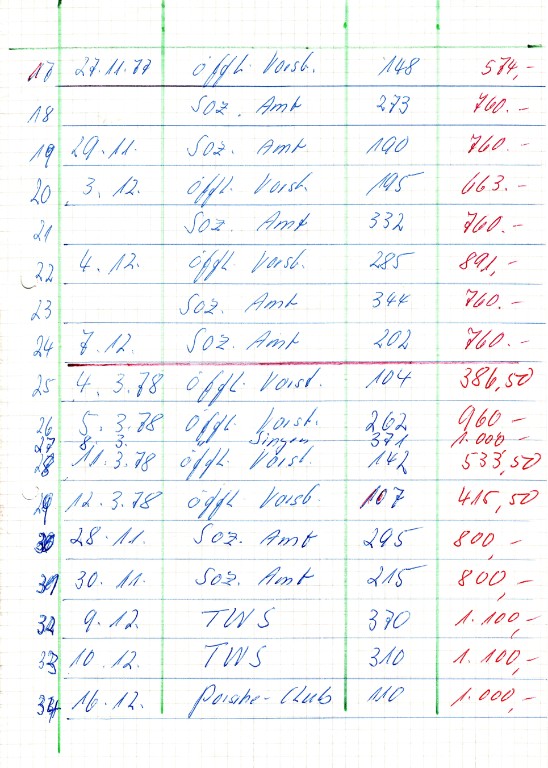 17 27.11.77 öffl. Vorst. 148 574,-
18 Soz. Amt 273 760.-
19 29.11. Soz. Amt 190 760.-
20 3.12. öffl. Vorst. 195 663.-
21 Soz. Amt 332 760.-
22 4.12. öffl. Vorst. 285 891,-
23 Soz. Amt 344 760.-
24 7.12. Soz. Amt 202 760.-
25 4.3.78 öffl. Vorst. 104 386,50
26 5.3.78 öffl. Vorst. 262 960-
27 8.3. Singen 371 1.000-
28 11.3.78 öffl. Vorst. 142 533,50
29 12.3.78 öffl. Vorst. 107 415,50
30 28.11. Soz. Amt 295 800,-
31 30.11. Soz. Amt 215 800,-
32 9.12. TWS 370 1.100,-
33 10.12. TWS 310 1.100,-
34 16.12. Porsche-Club 110 1.000,-